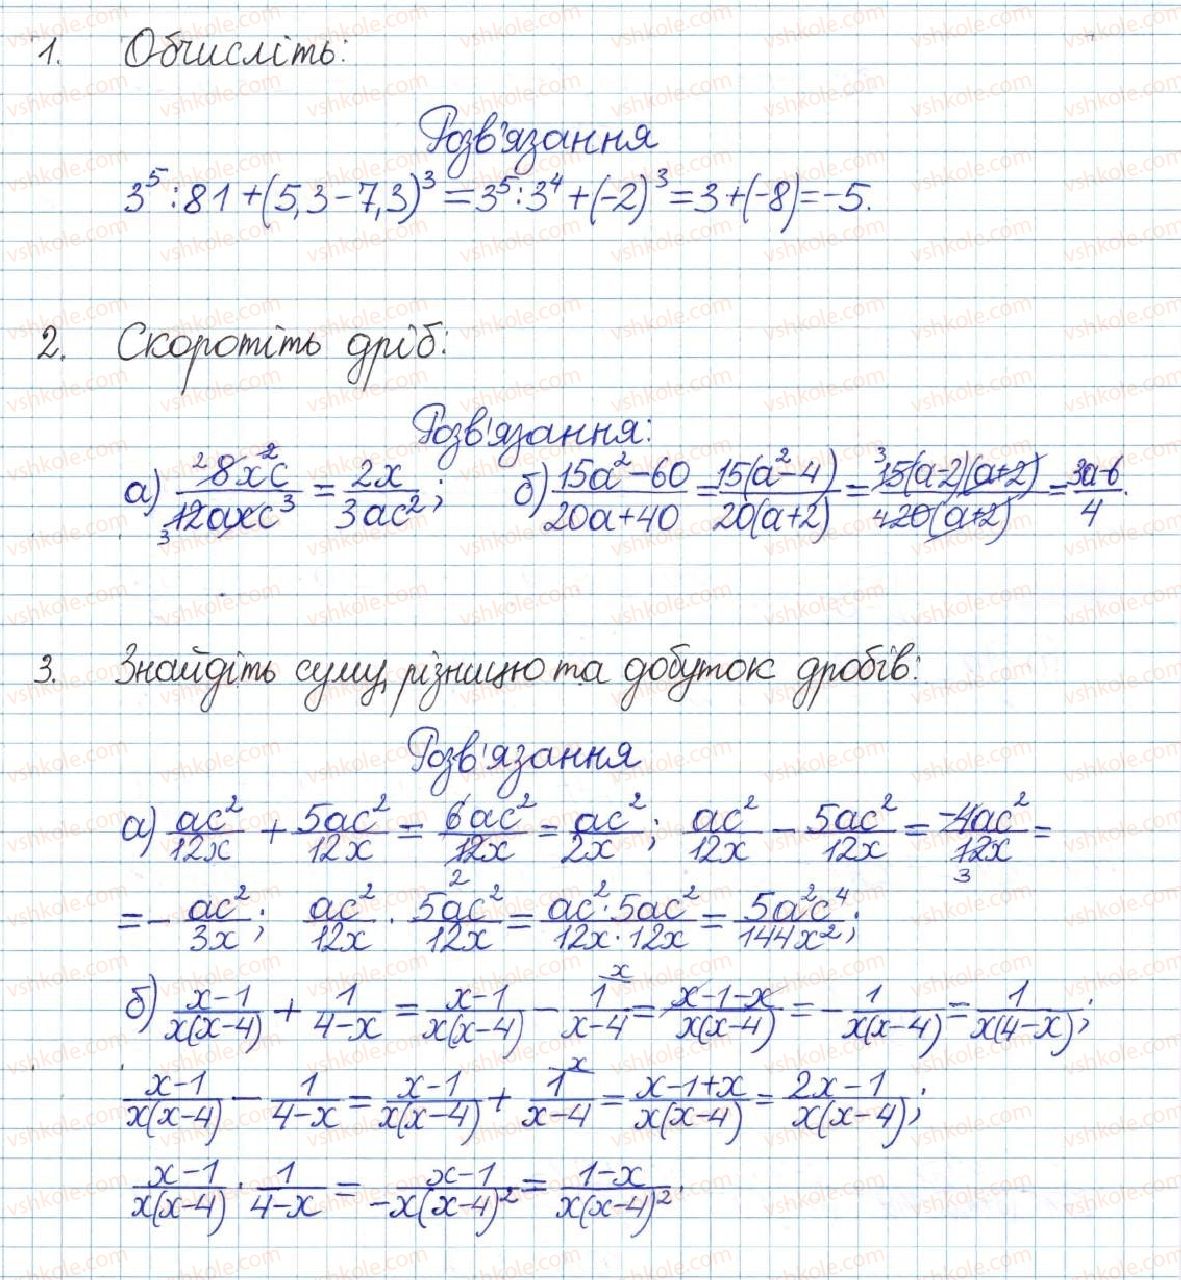 1. Обчисліть:
Розв'язання
3⁵:81+(5,3-7,3)³=3⁵:3⁴+(-2)³=3+(-8)=-5.
2. Скоротіть дріб:
Розв'язання:
а) 8x²c/12axc³ = 2x/3ac²; б) 15a²-60/20a+40 = 15(a²-4)/20(a+2) = 15(a-2)(a+2)/20(a+2) = 3a-6/4.
3. Знайдіть суму, різницю та добуток дробів:
Розв'язання
а) ac²/12x + 5ac²/12x = 6ac²/12x = ac²/2x; ac²/12x - 5ac²/12x = -4ac²/12x =
= - ac²/3x; ac²/12x · 5ac²/12x = ac²·5ac²/12x·12x = 5a²c⁴/144x²;
б) x-1/x(x-4) + 1/4-x = x-1/x(x-4) - 1/x-4 = x-1-x/x(x-4) = - 1/x(x-4) = 1/x(4-x);
x-1/x(x-4) - 1/4-x = x-1/x(x-4) + 1/x-4 = x-1+x/x(x-4) = 2x-1/x(x-4);
x-1/x(x-4) · 1/4-x = x-1/-x(x-4)² = 1-x/x(x-4)².
vshkole.com